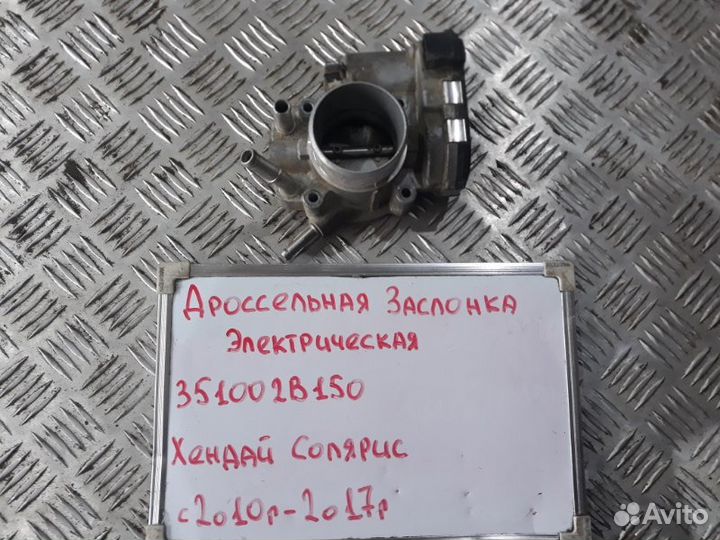 Дроссельная Заслонка
Электрическая
351002B150
Хендай Солярис
с2010г-2017г
Avito